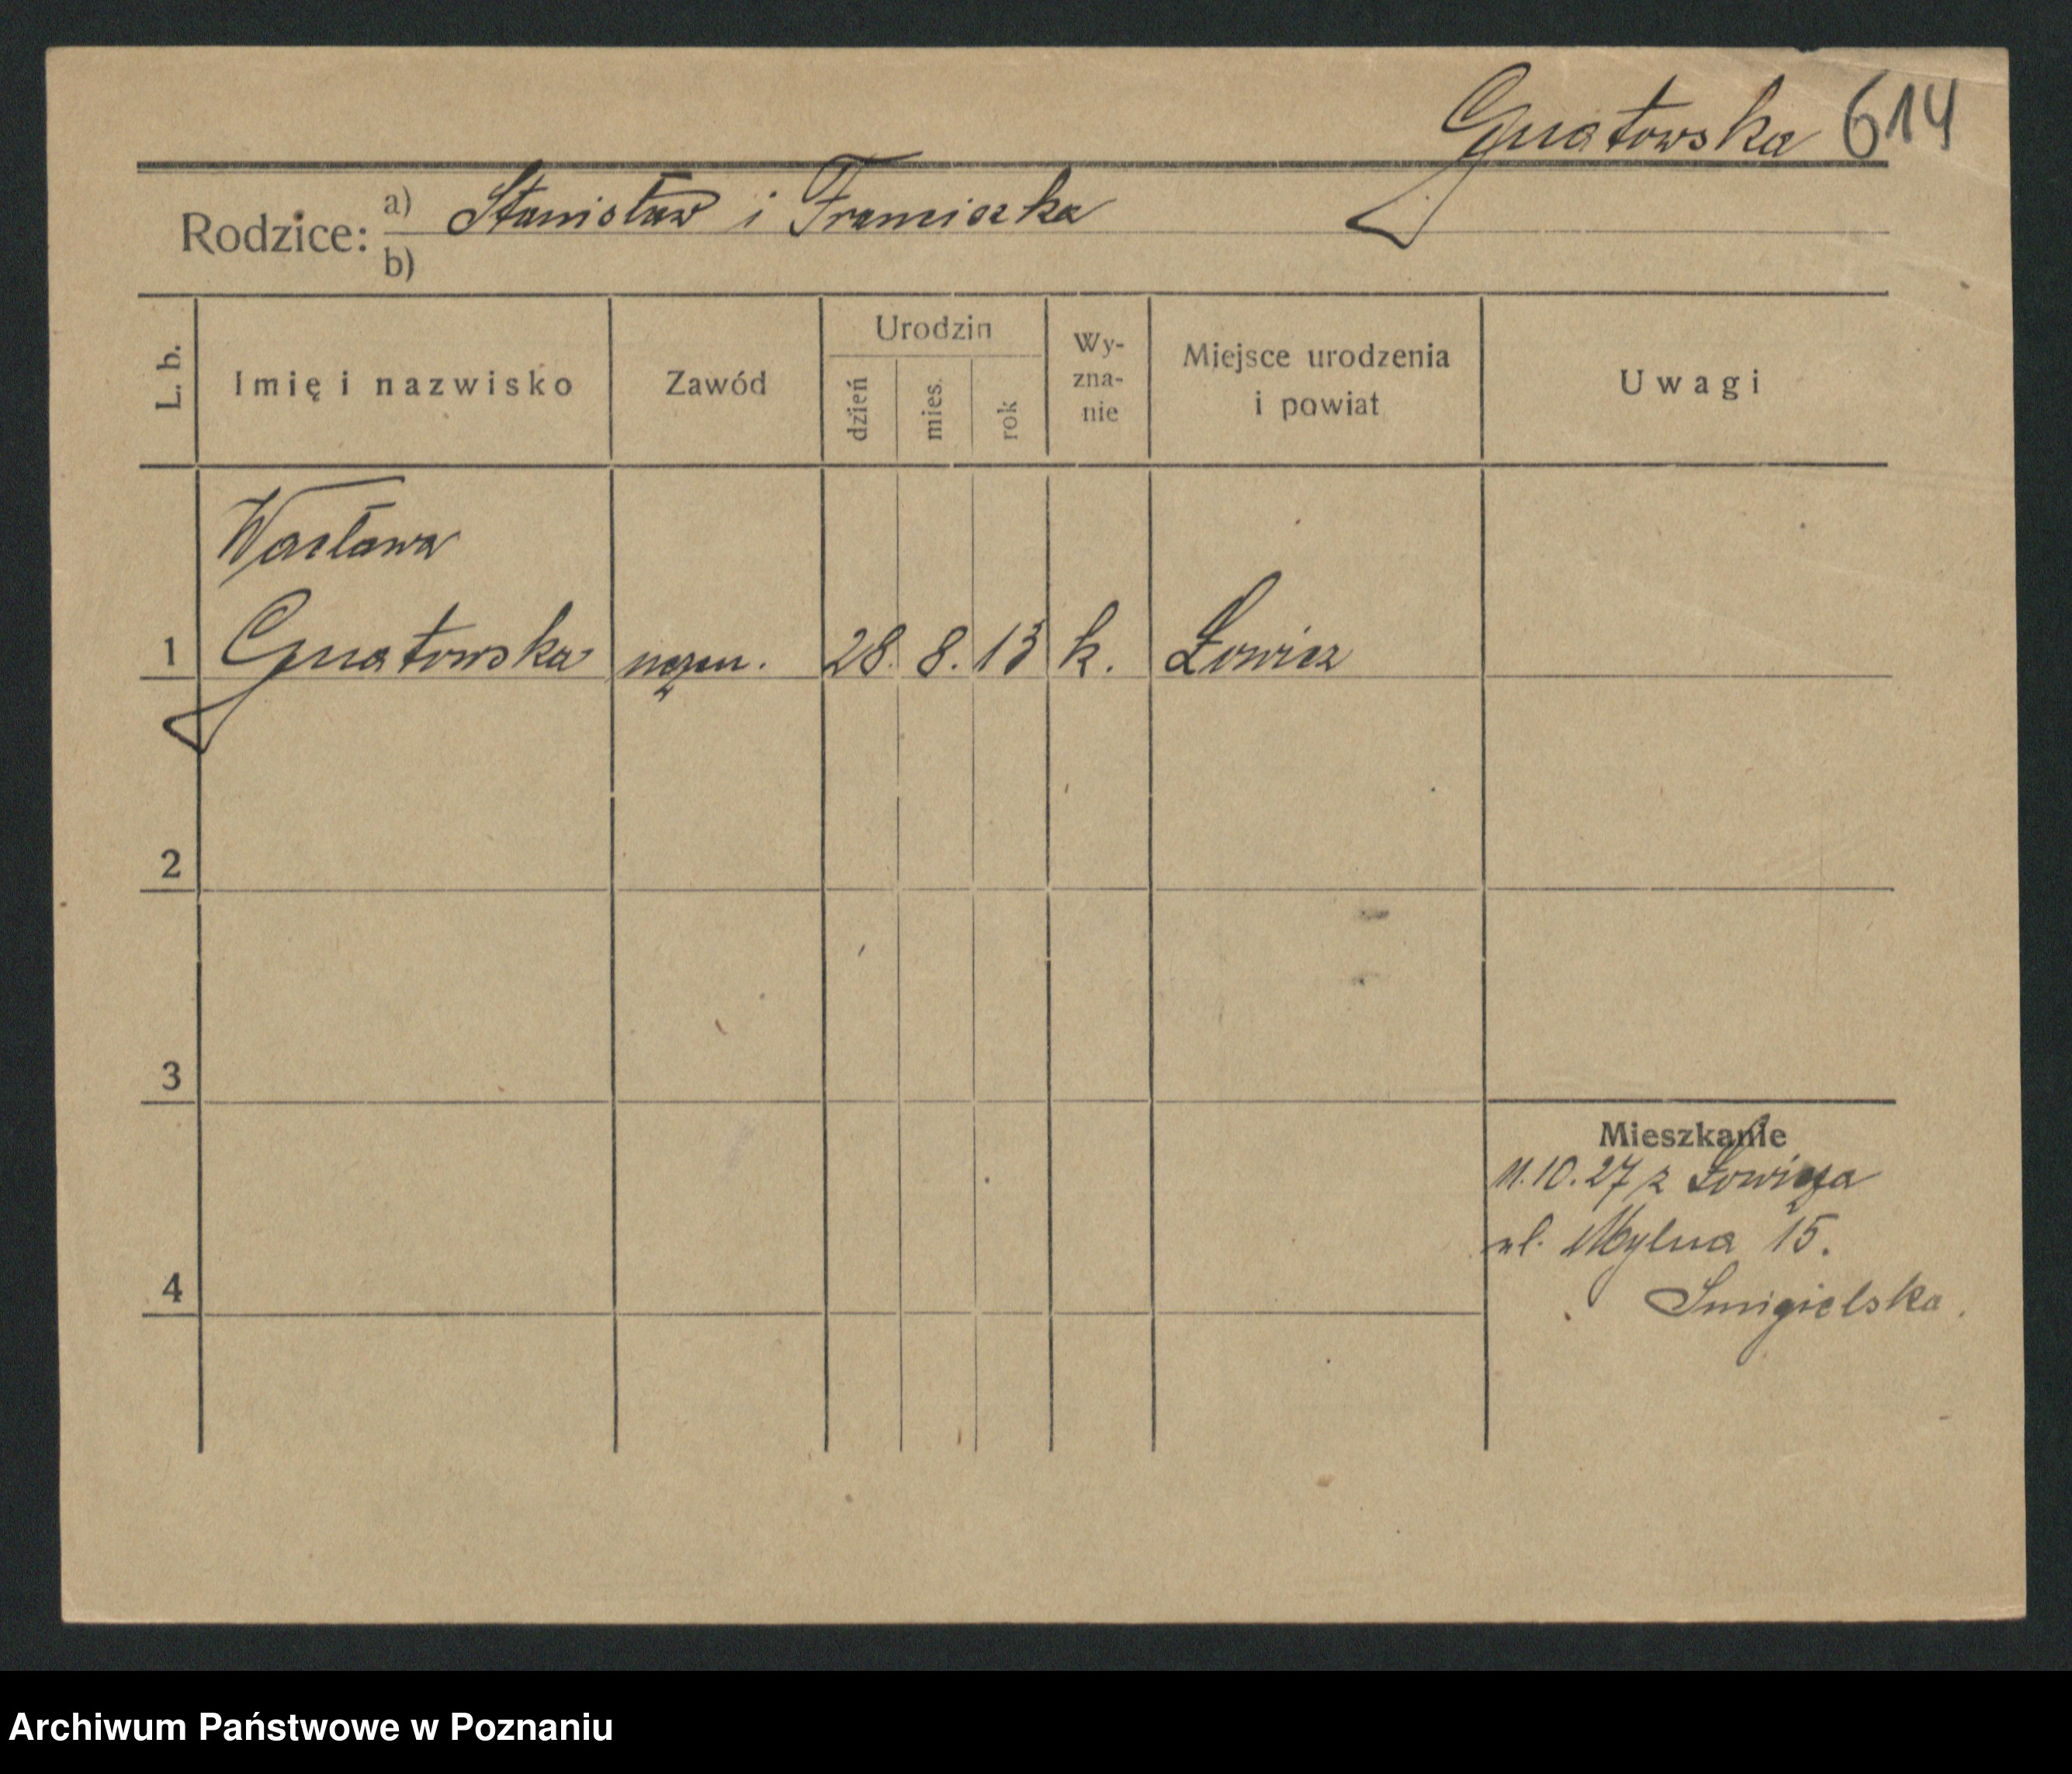 Gnatowska 614
Rodzice: a) Stanisław i Franciszka
b)
L. b. Imię i nazwisko Zawód Urodzin dzień mies. rok Wy-zna-nie Miejsce urodzenia i powiat Uwagi
Wacława
1 Gnatowska uczen. 28. 8. 13 k. Łowicz
2
3
Mieszkanie
11.10.27 z Łowicza
ul. Mylna 15.
4
Smigielska.
Archiwum Państwowe w Poznaniu